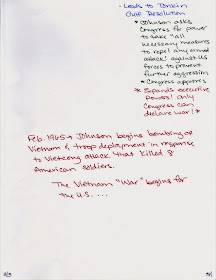 - Leads to Tonkin
Gulf Resolution
* Johnson asks
Congress for power
to take "all
necessary measures
to repel any armed
attack" against US
forces to prevent
further aggression
* Congress approves
* Expands executive
Power! Only
Congress can
declare war! *
Feb. 1965 → Johnson begins bombing of
Vietnam & troop deployment in response
to Vietcong attack that killed 8
American soldiers.
The Vietnam "War" begins for
the U.S. ....